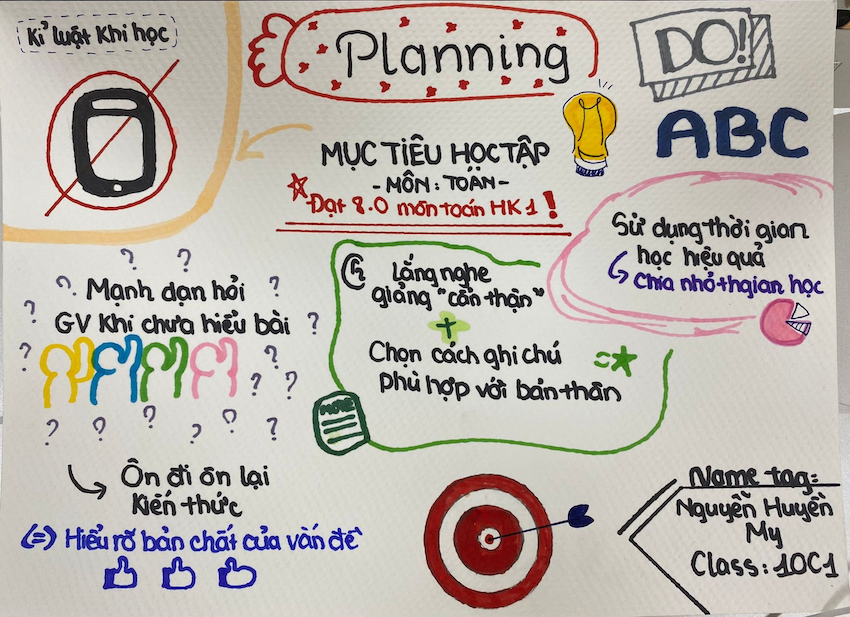 Kỉ luật khi học
Planning
DO!
ABC
MỤC TIÊU HỌC TẬP
- MÔN: TOÁN -
Đạt 8.0 môn toán HK1!
Sử dụng thời gian
học hiệu quả
Chia nhỏ thgian học
Mạnh dạn hỏi
GV khi chưa hiểu bài
Lắng nghe
giảng "cẩn thận"
+
Chọn cách ghi chú
phù hợp với bản thân
NOTE
Ôn đi ôn lại
kiến thức
(=) Hiểu rõ bản chất của vấn đề
Name tag:
Nguyễn Huyền
My
Class: 10C1